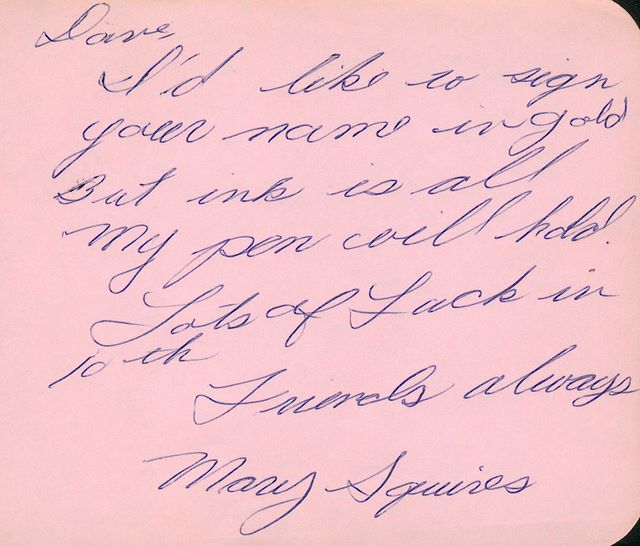 Dave,
I'd like to sign
your name in gold
But ink is all
my pen will hold.
Lots of Luck in
10th
Friends always
Mary Squires